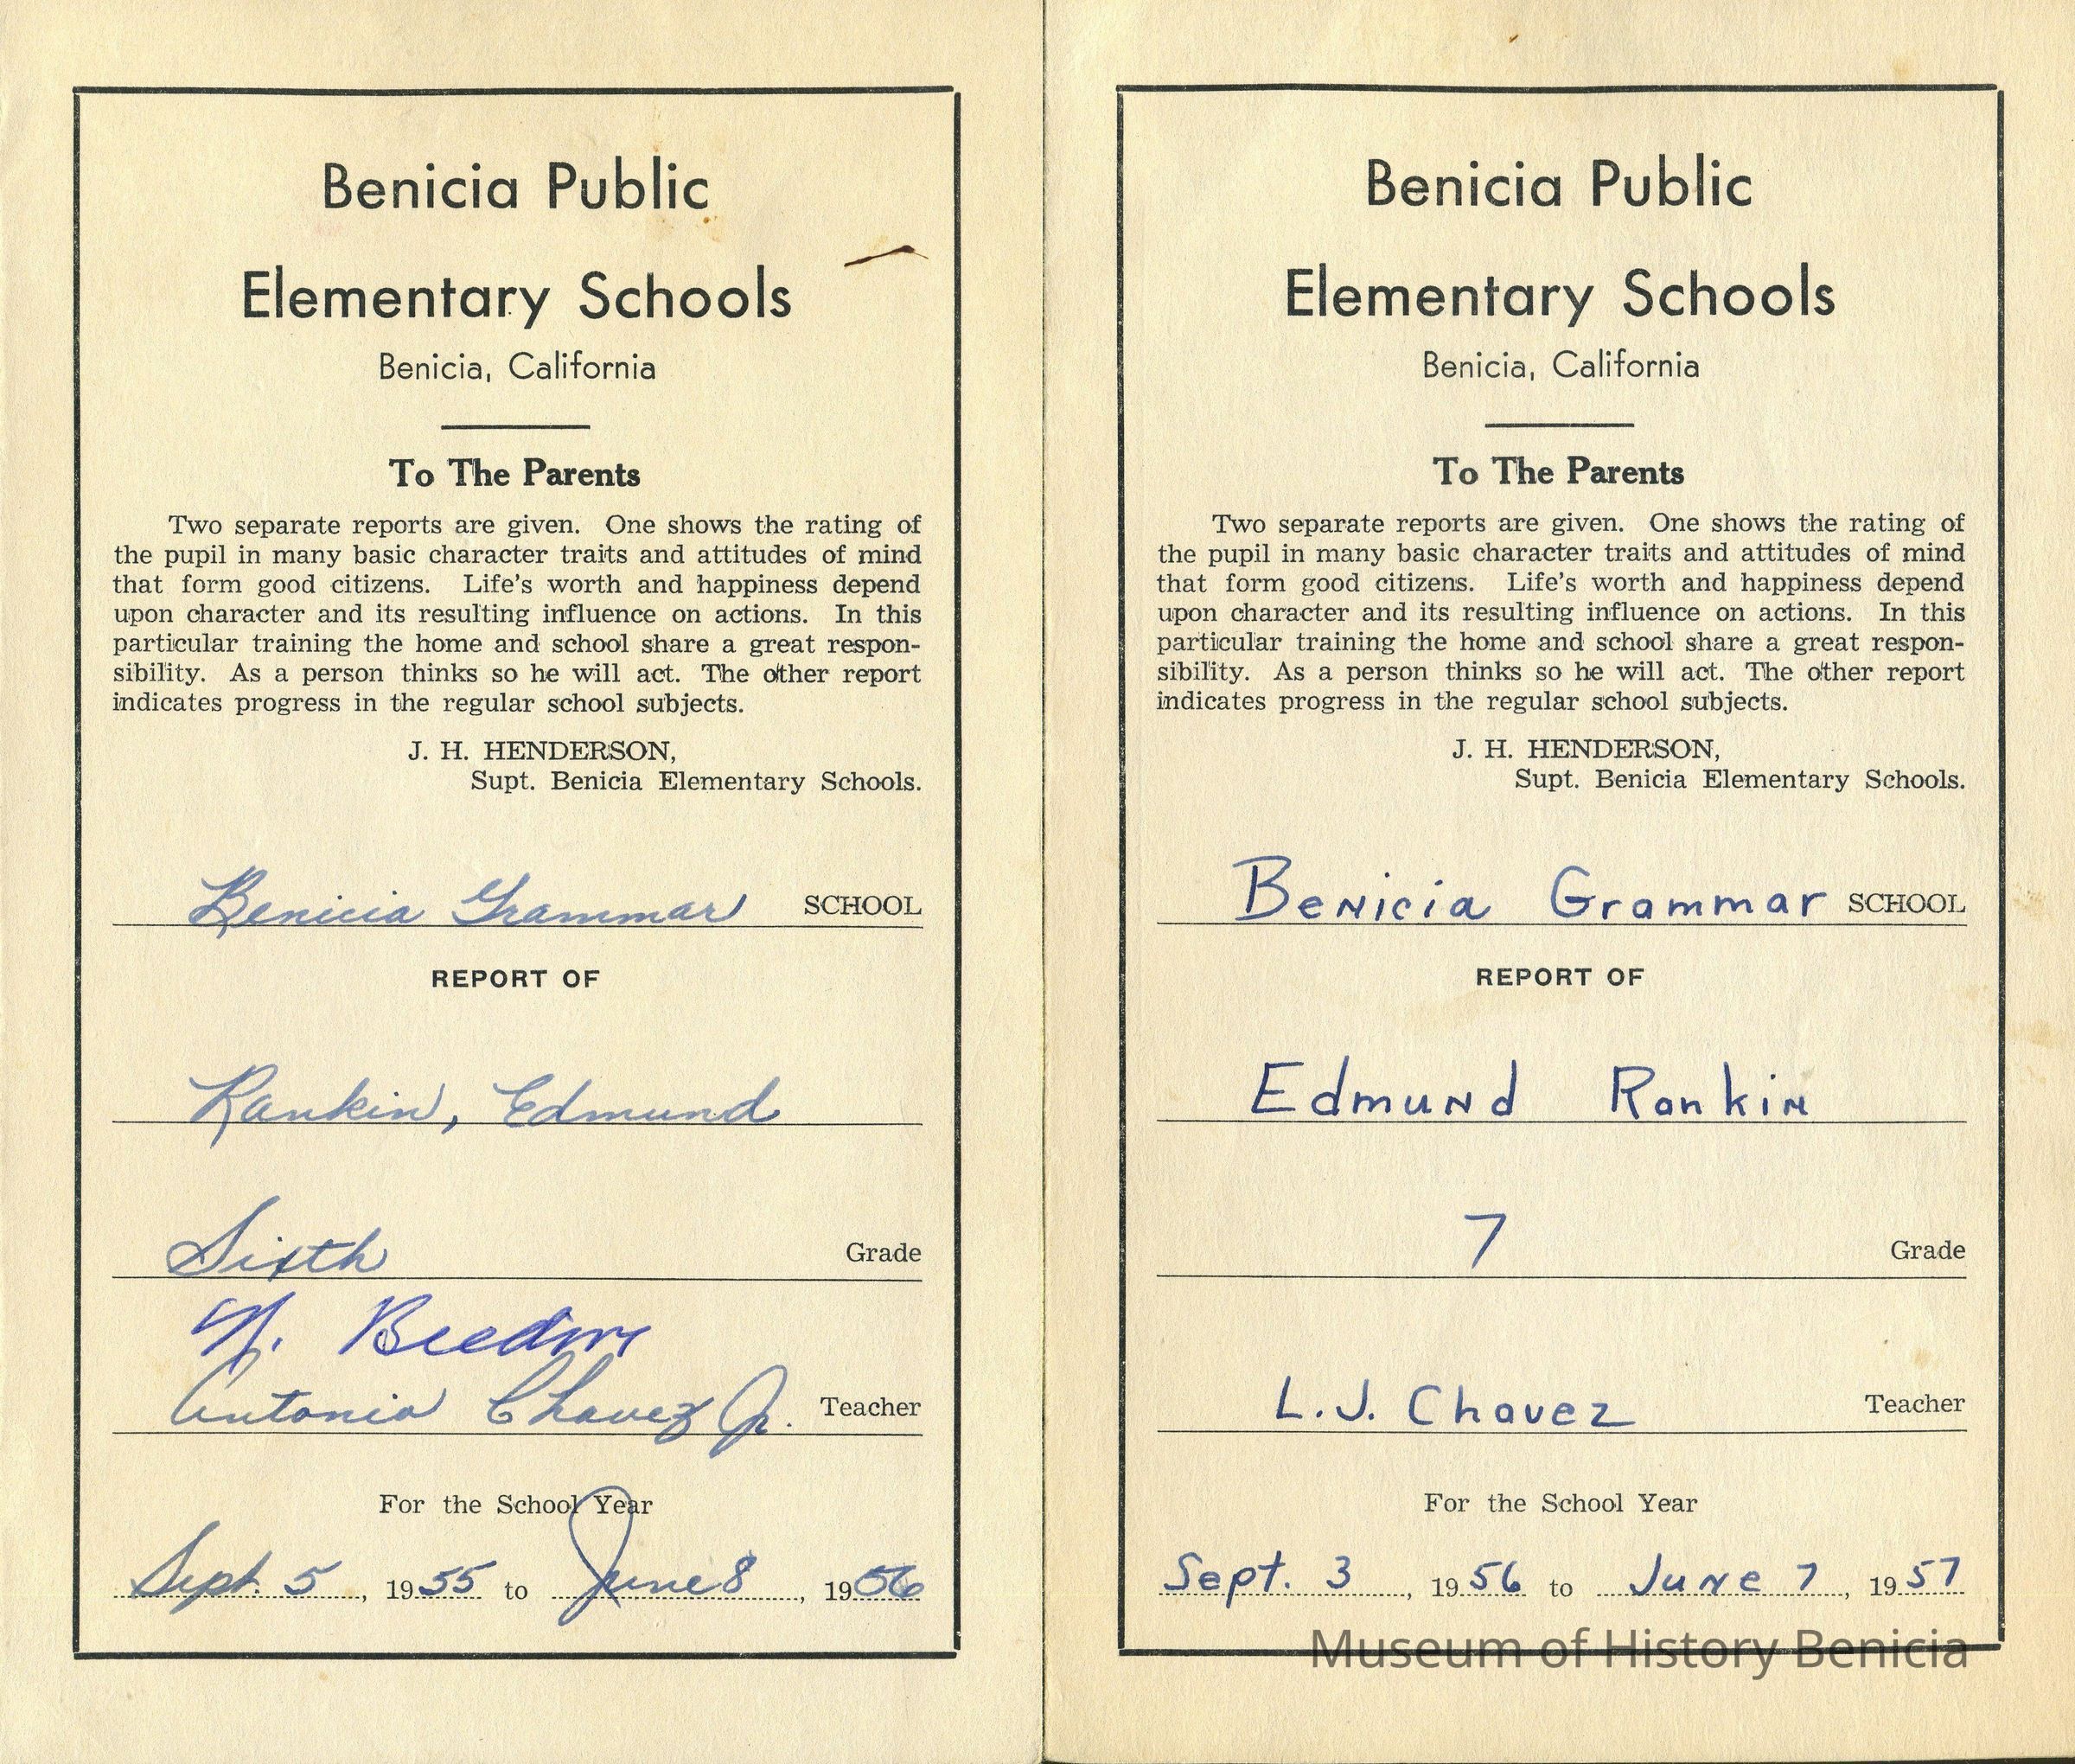 Benicia Public
Elementary Schools
Benicia, California
To The Parents
Two separate reports are given. One shows the rating of
the pupil in many basic character traits and attitudes of mind
that form good citizens. Life's worth and happiness depend
upon character and its resulting influence on actions. In this
particular training the home and school share a great respon-
sibility. As a person thinks so he will act. The other report
indicates progress in the regular school subjects.
J. H. HENDERSON,
Supt. Benicia Elementary Schools.
Benicia Grammar SCHOOL
REPORT OF
Rankin, Edmund
Sixth Grade
Antonio Chavez Jr. Teacher
For the School Year
Sept. 5, 1955 to June 8, 1956
Benicia Public
Elementary Schools
Benicia, California
To The Parents
Two separate reports are given. One shows the rating of
the pupil in many basic character traits and attitudes of mind
that form good citizens. Life's worth and happiness depend
upon character and its resulting influence on actions. In this
particular training the home and school share a great respon-
sibility. As a person thinks so he will act. The other report
indicates progress in the regular school subjects.
J. H. HENDERSON,
Supt. Benicia Elementary Schools.
Benicia Grammar SCHOOL
REPORT OF
Edmund Rankin
7 Grade
L.J. Chavez Teacher
For the School Year
Sept. 3, 1956 to June 7, 1957
Museum of History Benicia